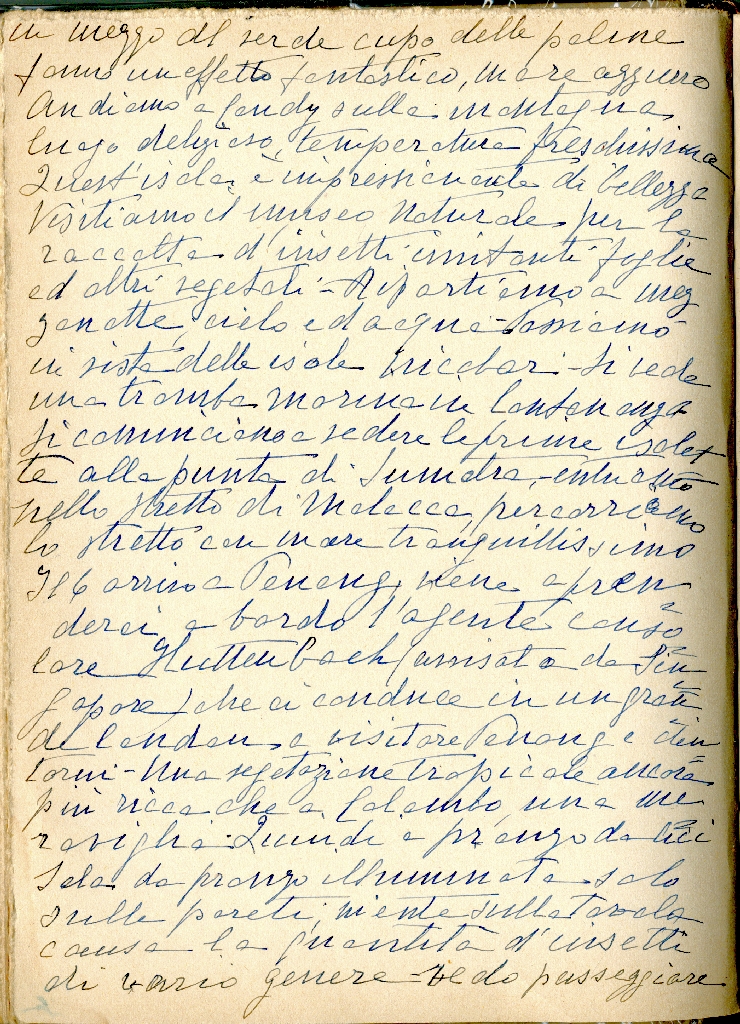 in mezzo al verde cupo delle palme
fanno un effetto fantastico, mare azzurro
Andiamo a Candy sulla montagna
luogo delizioso, temperatura freschissima
Quest'isola è impressionante di bellezza
Visitiamo il museo Naturale per la
raccolta d'insetti imitanti foglie
ed altri vegetali - Ripartiamo a mez
zanotte, cielo ed acqua - Passiamo
in vista delle isole Nicobari - Si vede
una tromba marina in lontananza
Si cominciano a vedere le prime isolet
te alla punta di Sumatra, entriamo
nello stretto di Malacca, percorriamo
lo stretto con mare tranquillissimo
Il 6 arrivo a Penang, viene a pren
derci a bordo l'agente conso
lare Huttenbach (avvisato da Sin
gapore) che ci conduce in un gran
de landau, a visitare Penang e din
torni - Una vegetazione tropicale ancora
più ricca che a Colombo, una me
raviglia. Quindi a pranzo da lui
Sala da pranzo illuminata solo
sulle pareti, niente sulla tavola
causa la quantità d'insetti
di vario genere - Vedo passeggiare